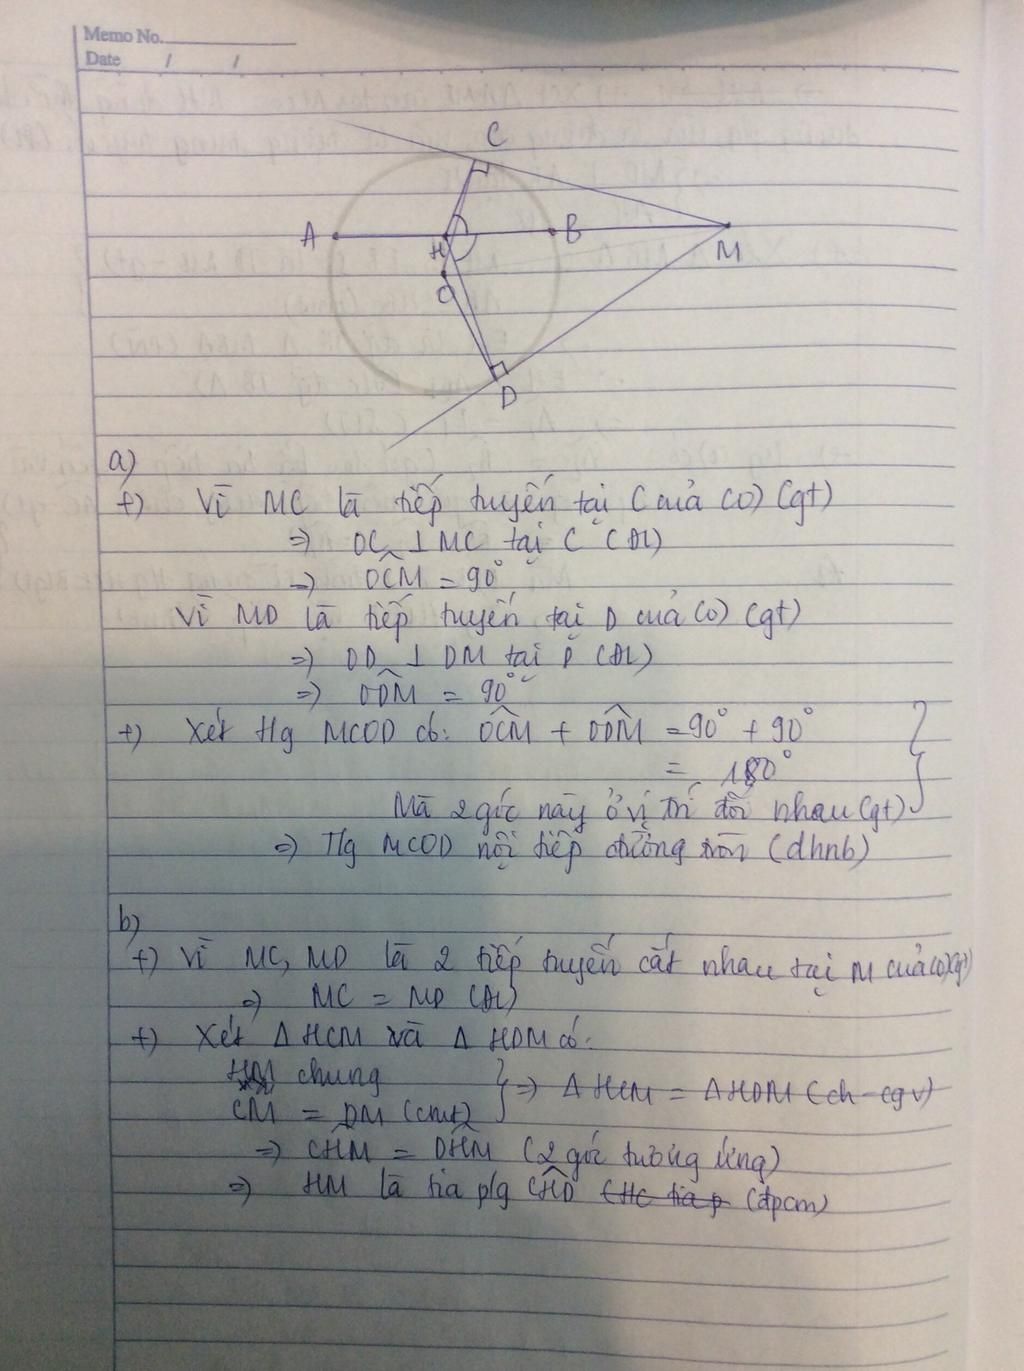 Memo No.
Date / /
C
A
H
B
M
O
D
a)
+) Vì MC là tiếp tuyến tại C của (O) (gt)
=> OC ⊥ MC tại C (ĐL)
=> OĈM = 90°
Vì MD là tiếp tuyến tại D của (O) (gt)
=> OD ⊥ DM tại D (ĐL)
=> OD̂M = 90°
+) Xét tg MCOD có: OĈM + OD̂M = 90° + 90°
= 180°
Mà 2 góc này ở vị trí đối nhau (gt)
=> Tg MCOD nội tiếp đường tròn (dhnb)
b)
+) Vì MC, MD là 2 tiếp tuyến cắt nhau tại M của (O) (gt)
=> MC = MD (ĐL)
+) Xét Δ HCM và Δ HDM có:
HM chung
CM = DM (cmt) } => Δ HCM = Δ HDM (ch-cgv)
=> CĤM = DĤM (2 góc tương ứng)
=> HM là tia p/g CĤD (HC tia p (đpcm)